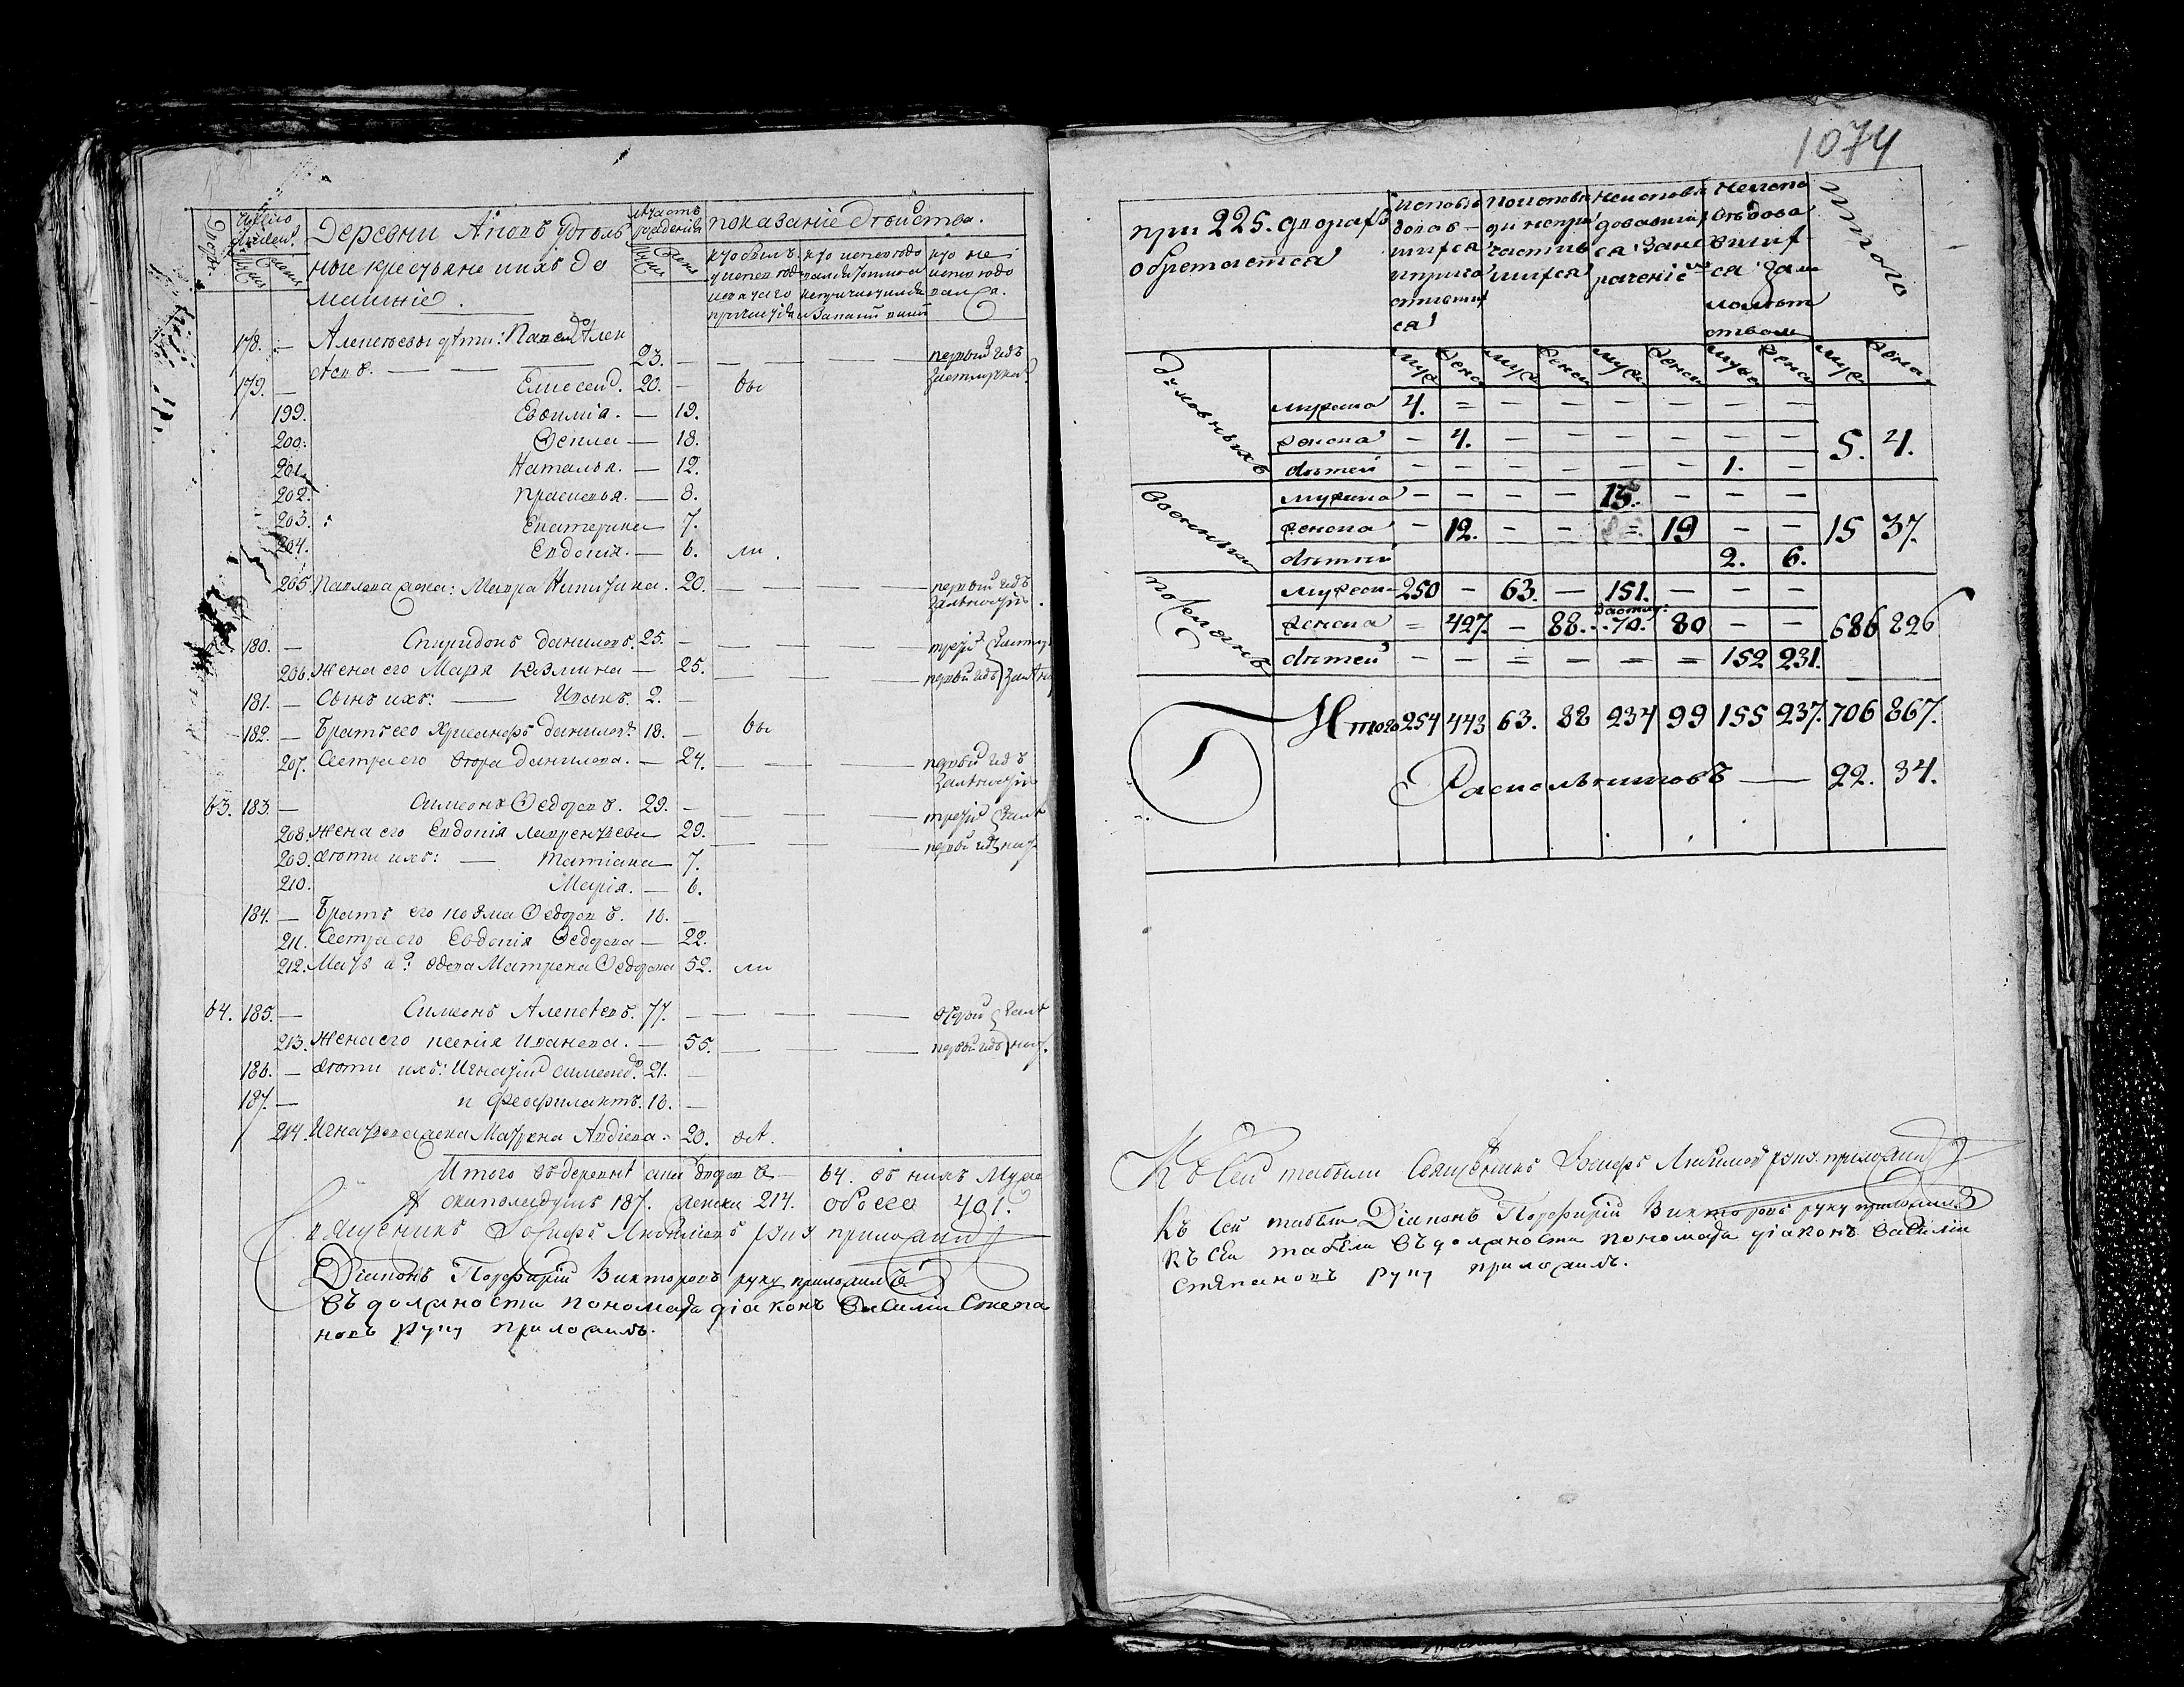 число
людей
Двор
Муж
Жен
Деревни
ные крестьяне и ихъ до
машніе.
лѣта отъ
рожденія
Муж
Жен
показаніе дѣйства.
178. — Алексѣевы дѣти: Павелъ Алек
сѣевъ. — — 23. — — — — первый годъ
за отлучкою
179. — Елисей. 20. — бы
199. Евѳимія. — 19.
200. Ѳекла — 18.
201. Наталья. — 12.
202. Прасковья. — 8.
203. Екатерина 7.
204. Евдокія. — 6. ли.
205. Павлова жена: Мавра Никитина. 20. — — — первый годъ
180. — Спиридонъ Даниловъ. 25. — — — —
206. Жена его Марѳа Козмина — 25. — — — первый годъ
181. — Сынъ ихъ: — Иванъ. 2. —
182. — Братъ его Хрисанфъ Данилов. 18. — бы
207. Сестра его Данилова. — 24. — — — первый годъ
63. 183. — Симеонъ Ѳедоровъ. 29. — — — — третій
208. Жена его Евдокія Лаврентьева 29. — — — первый годъ
209. дѣти ихъ: — Татіана 7.
210. Марія. — 6.
184. — Братъ его Козма Ѳедоровъ. 16. —
211. Сестра его Евдокія Ѳедорова — 22.
212. Мать его вдова Матрена Ѳедорова 52. ли
64. 185. — Симеонъ Алексѣевъ. 77. — — — — второй
213. Жена его Ксенія Иванова. — 55. — — — первый годъ
186. — дѣти ихъ: Игнатій Симеонов. 21. —
187. — и Феофилактъ. 16. —
214. Игнатьева жена Матрена Авдіева. 20.
Итого въ деревнѣ сей дворовъ — 64. въ нихъ Муже
ска полу душъ 187. женска 214. обоего 401.
Священникъ Іосифъ Любимовъ руку приложилъ
Діаконъ Порфирій Викторовъ руку приложилъ
Въ должности пономаря діаконъ Василій Степа
новъ руку приложилъ.
1074
при 225. дворахъ
обретается
исповѣ
довав-
шихся
и прича
стивших
ся
исповѣ
да не при
частив
шихся
неисповѣ
довавших
ся за не
раченіемъ
неиспо
вѣдова
вших-
ся за ма
лолѣт
ствомъ
итого
муж женс муж женс муж женс муж женс муж женс
духовныхъ
мужеска 4. = — — — — — —
женска — 4. — — — — — — 5. 4.
дѣтей — — — — — — 1. —
военныхъ
мужеска — — — — 15. — — —
женска — 12. — — 19 — — 15 37.
дѣтей 2. 6.
поселянъ
мужеска 250 — 63. — 151. — — —
женска = 427. — 88. 70. 80 — — 686 826
дѣтей — — = — — = 152 231.
Итого 254 443 63. 88 234 99 155 237. 706 867.
Раскольниковъ — 22. 34.
Къ сей табели Священникъ Іосифъ Любимовъ руку приложилъ
Къ сей табели Діаконъ Порфирій Викторовъ руку приложилъ
Къ сей табели въ должности пономаря діаконъ Василій
Степановъ руку приложилъ.